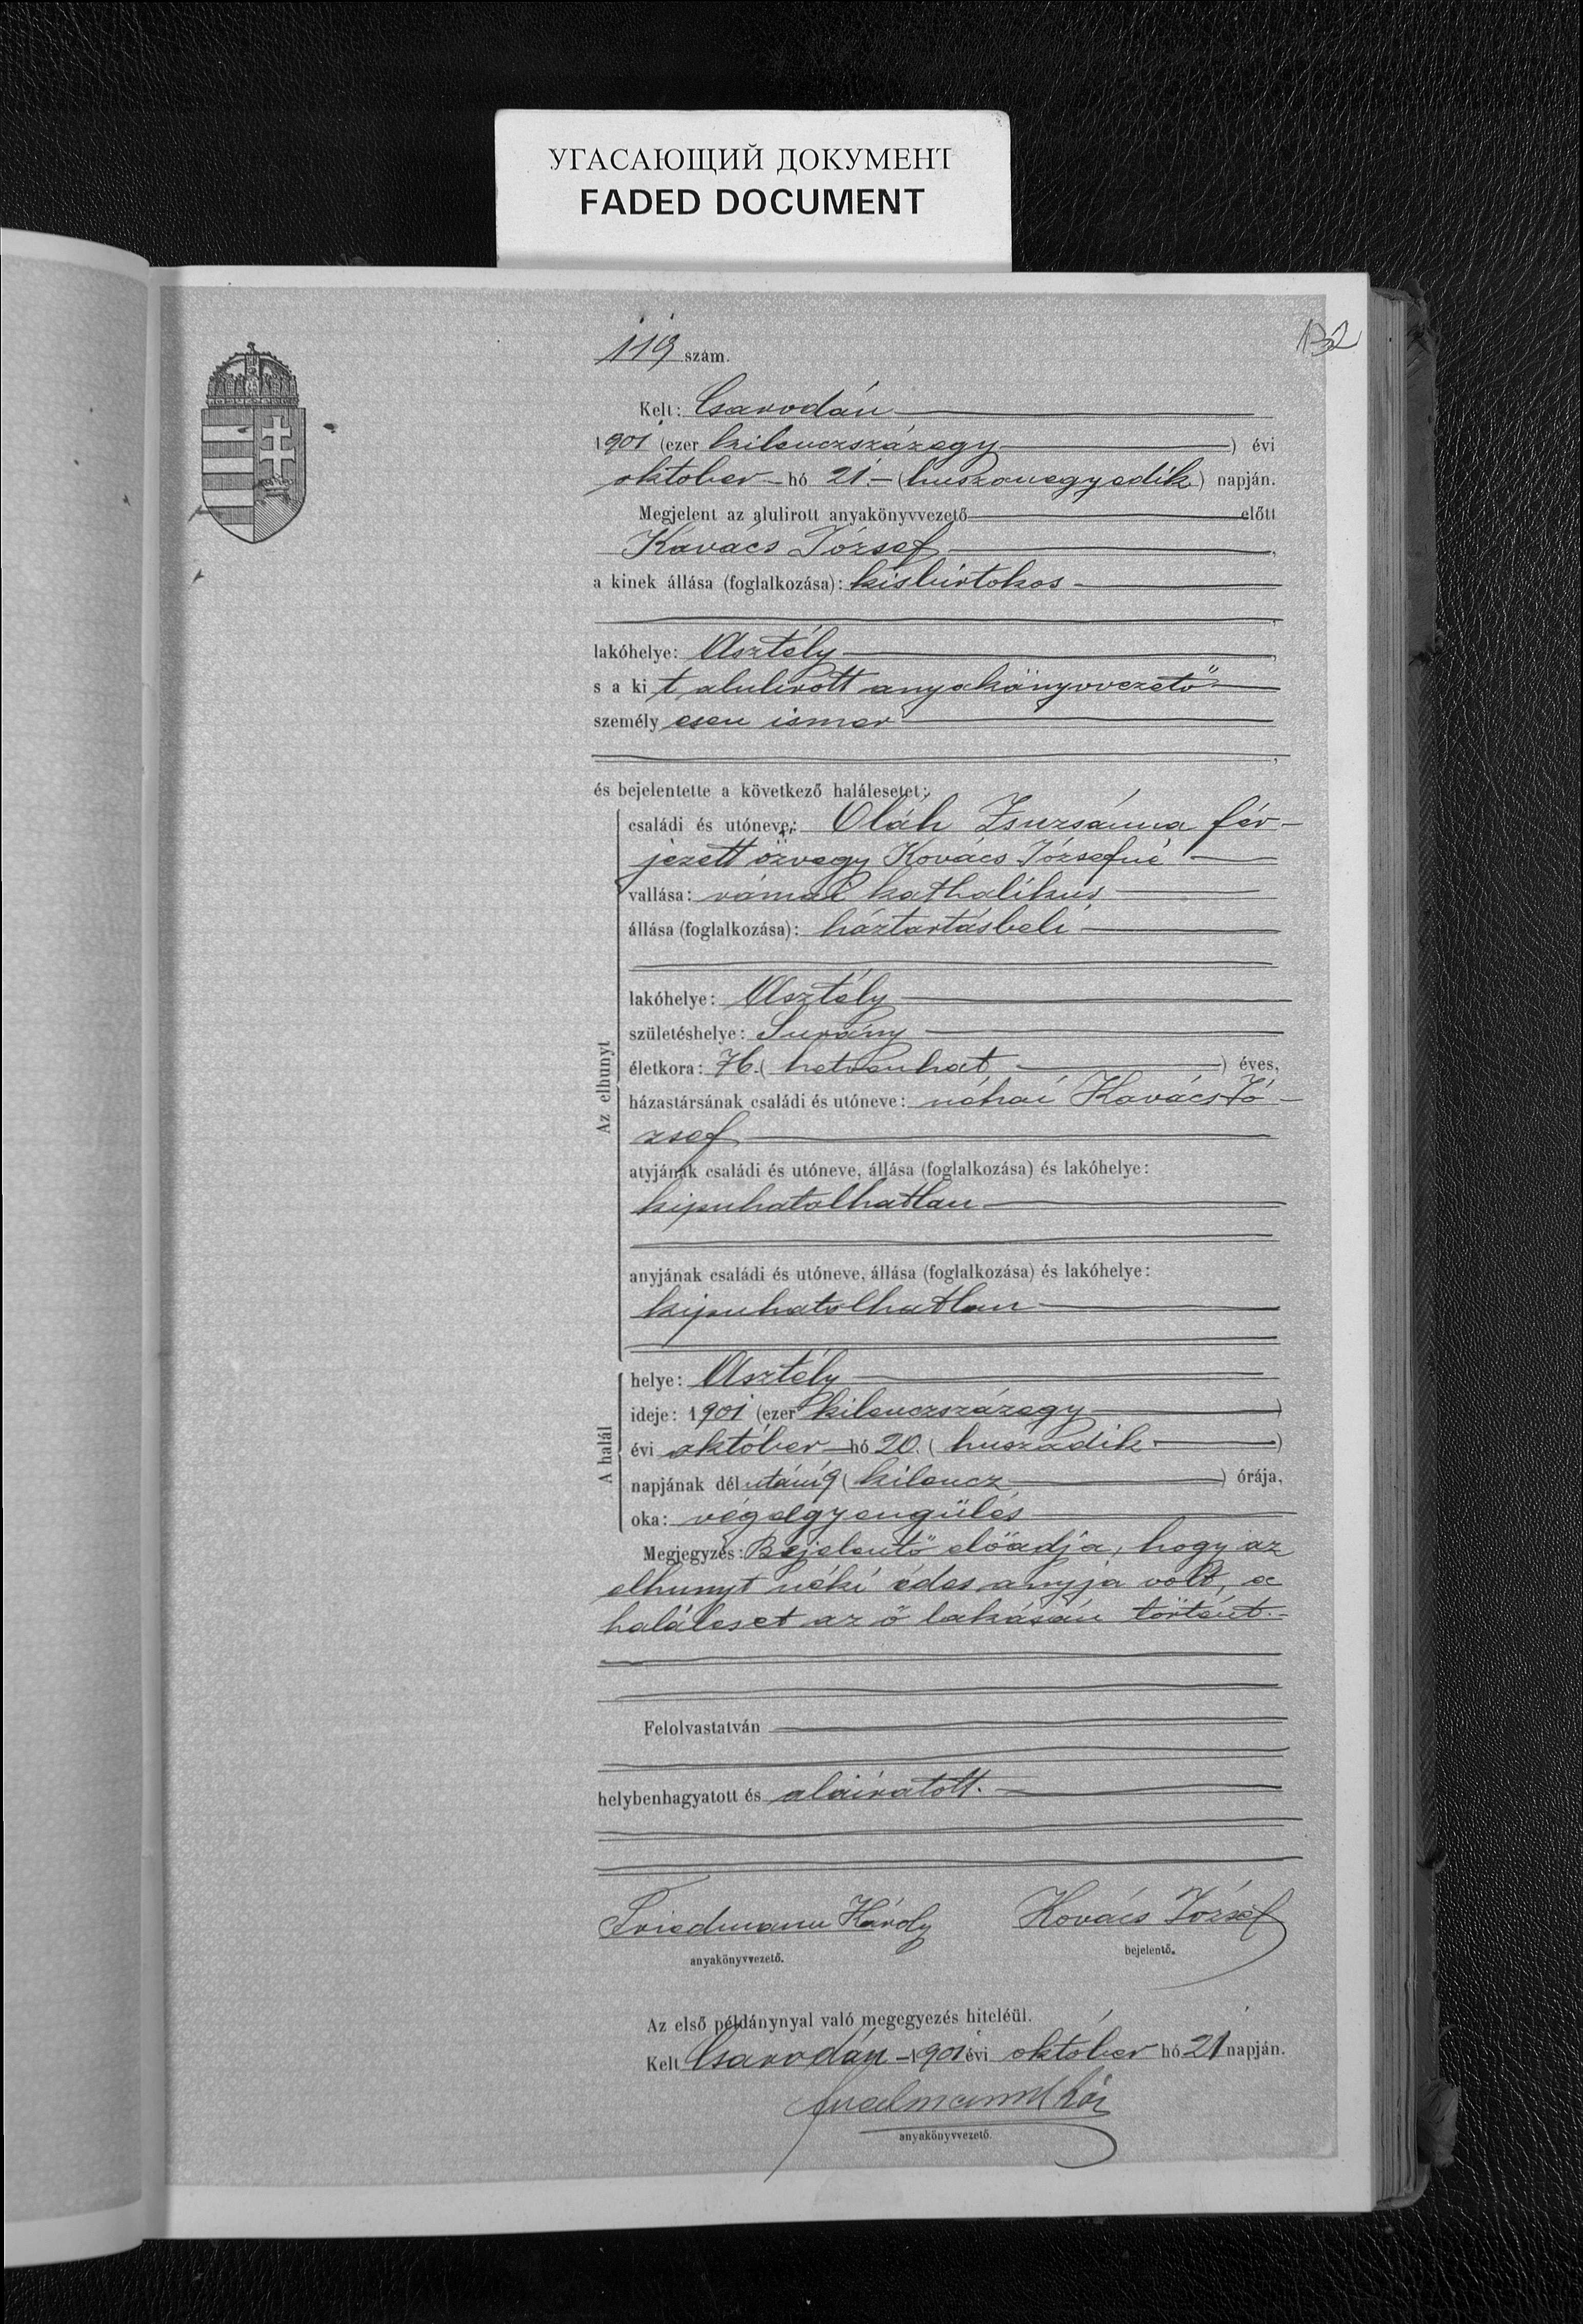 УГАСАЮЩИЙ ДОКУМЕНТ
FADED DOCUMENT
132
119 szám.
Kelt: Csarodán
1901 (ezer kilenczszázegy) évi
október hó 21. (huszonegyedik) napján.
Megjelent az alulirott anyakönyvvezető előtt
Kovács József,
a kinek állása (foglalkozása): kisbirtokos
lakóhelye: Asztély,
s a kit alulirott anyakönyvvezető
személyesen ismer,
és bejelentette a következő halálesetet:
Az elhunyt
családi és utóneve: Oláh Zsuzsánna fér-
jezett özvegy Kovács Józsefné
vallása: római katholikus
állása (foglalkozása): háztartásbeli
lakóhelye: Asztély
születéshelye: Surány
életkora: 76. (hetvenhat) éves,
házastársának családi és utóneve: néhai Kovács Jó-
zsef
atyjának családi és utóneve, állása (foglalkozása) és lakóhelye:
kipuhatolhatlan
anyjának családi és utóneve, állása (foglalkozása) és lakóhelye:
kipuhatolhatlan
A halál
helye: Asztély
ideje: 1901 (ezer kilenczszázegy)
évi október hó 20. (huszadik)
napjának délutáni 9 (kilencz) órája,
oka: végelgyengülés
Megjegyzés: Bejelentő előadja, hogy az
elhunyt néki édes anyja volt, a
haláleset az ő lakásán történt.
Felolvastatván
helybenhagyatott és aláiratott.
Friedmann Károly Kovács József
anyakönyvvezető. bejelentő.
Az első példánynyal való megegyezés hiteléül.
Kelt Csarodán 1901 évi október hó 21 napján.
anyakönyvvezető.